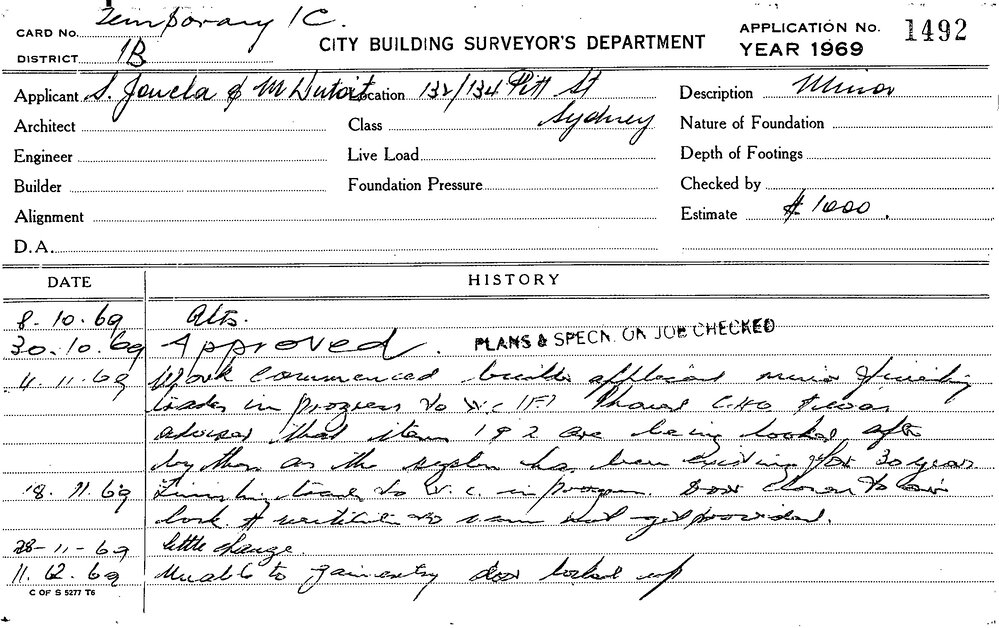 CARD No. Temporary 1C.
DISTRICT 1B
CITY BUILDING SURVEYOR'S DEPARTMENT
APPLICATION No. 1492
YEAR 1969
Applicant S. & M Dutoit Location 132/134 Pitt St Sydney
Description Minor
Architect
Class
Nature of Foundation
Engineer
Live Load
Depth of Footings
Builder
Foundation Pressure
Checked by
Alignment
Estimate $ 1000.
D.A.
DATE
HISTORY
8.10.69 Alts.
30.10.69 Approved. PLANS & SPECN. ON JOB CHECKED
4.11.69 Work commenced builder applicant minor finishing
trades in progress to W.C (F)
advises that item 1 & 2 are being looked after
by them as the system has been existing for 30 years
18.11.69 Finishing trades to W.C. in progress. Door closer to air
lock & ventilation to same not yet provided.
28-11-69 little change.
11.12.69 Unable to gain entry door locked up
C OF S 5277 T6